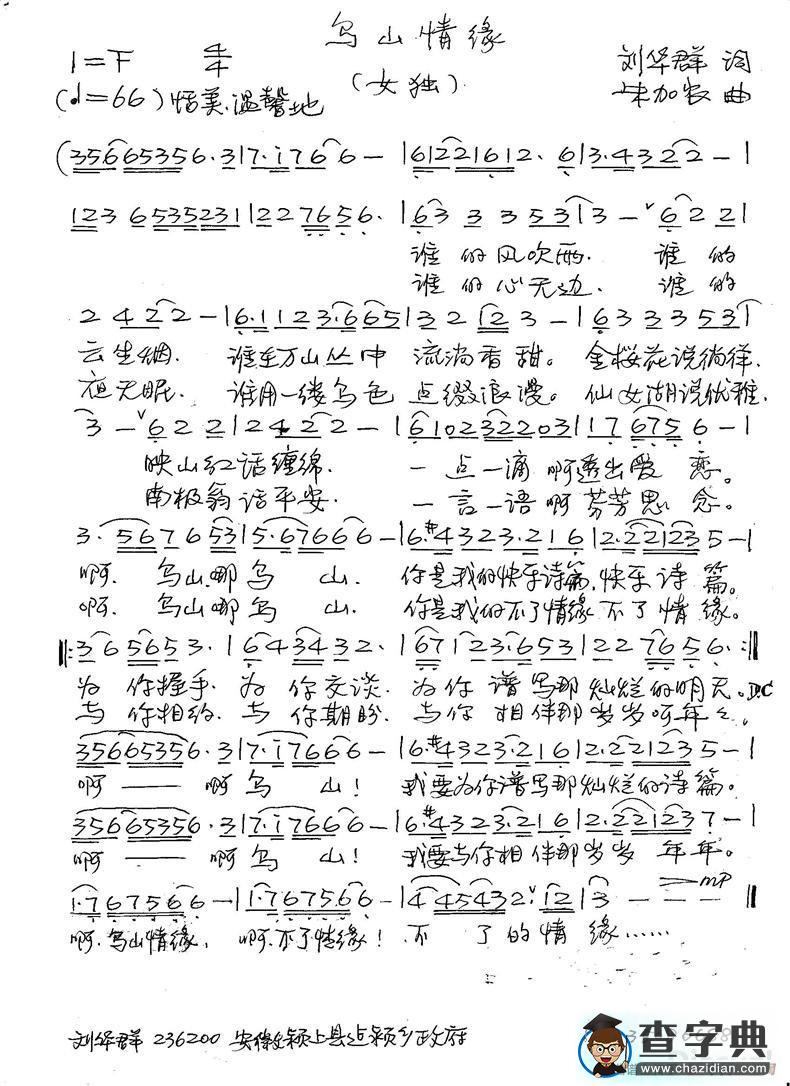 乌山情缘
1=F 4/4 (女独) 刘华群 词
(♩=66) 恬美.温馨地 加农 曲
(35665356.3|7.i766-|61221612.6|3.4322-|
123 6535231|227656.|63 3 353|3-ˇ622|
谁的风吹雨. 谁的
谁的心无边. 谁的
2422-|6.1123.665|32123-|6333 53|
云生烟. 谁在万山丛中 流淌香甜。 金桜花说徜徉.
夜无眠. 谁用一缕乌色 点缀浪漫。 仙女湖说优雅.
3-ˇ622|2422-|610232203|176756-|
映山红话缠绵. 一点一滴啊透出爱恋。
南极翁话平安. 一言一语啊芬芳思念。
3.567653|5.67666-|6.#4323.216|2.221235-|
啊. 乌山哪乌山. 你是我的快乐诗篇.快乐诗篇。
啊. 乌山哪乌山. 你是我的不了情缘不了情缘。
‖:365653.|643432.|67123.653|227656.:‖
为你握手.为你交谈.为你谱写那灿烂的明天。D.C
与你相约.与你期盼.与你相伴那岁岁呵年々.
356653 56.3|7.i7666-|6.#4323.216|2.221235-|
啊——啊乌山! 我要为你谱写那灿烂的诗篇。
356653 56.3|7.i7666-|6.#4323.216|2.221237-|
啊——啊乌山! 我要与你相伴那岁岁年年。
1.7675 66-|1.7675.66-|4454 32ˇ12|3--- mp‖
啊.乌山情缘. 啊.不了情缘! 不了的情缘……
刘华群 236200 安徽颍上县 颍乡政府
查字典
www.chazidian.com